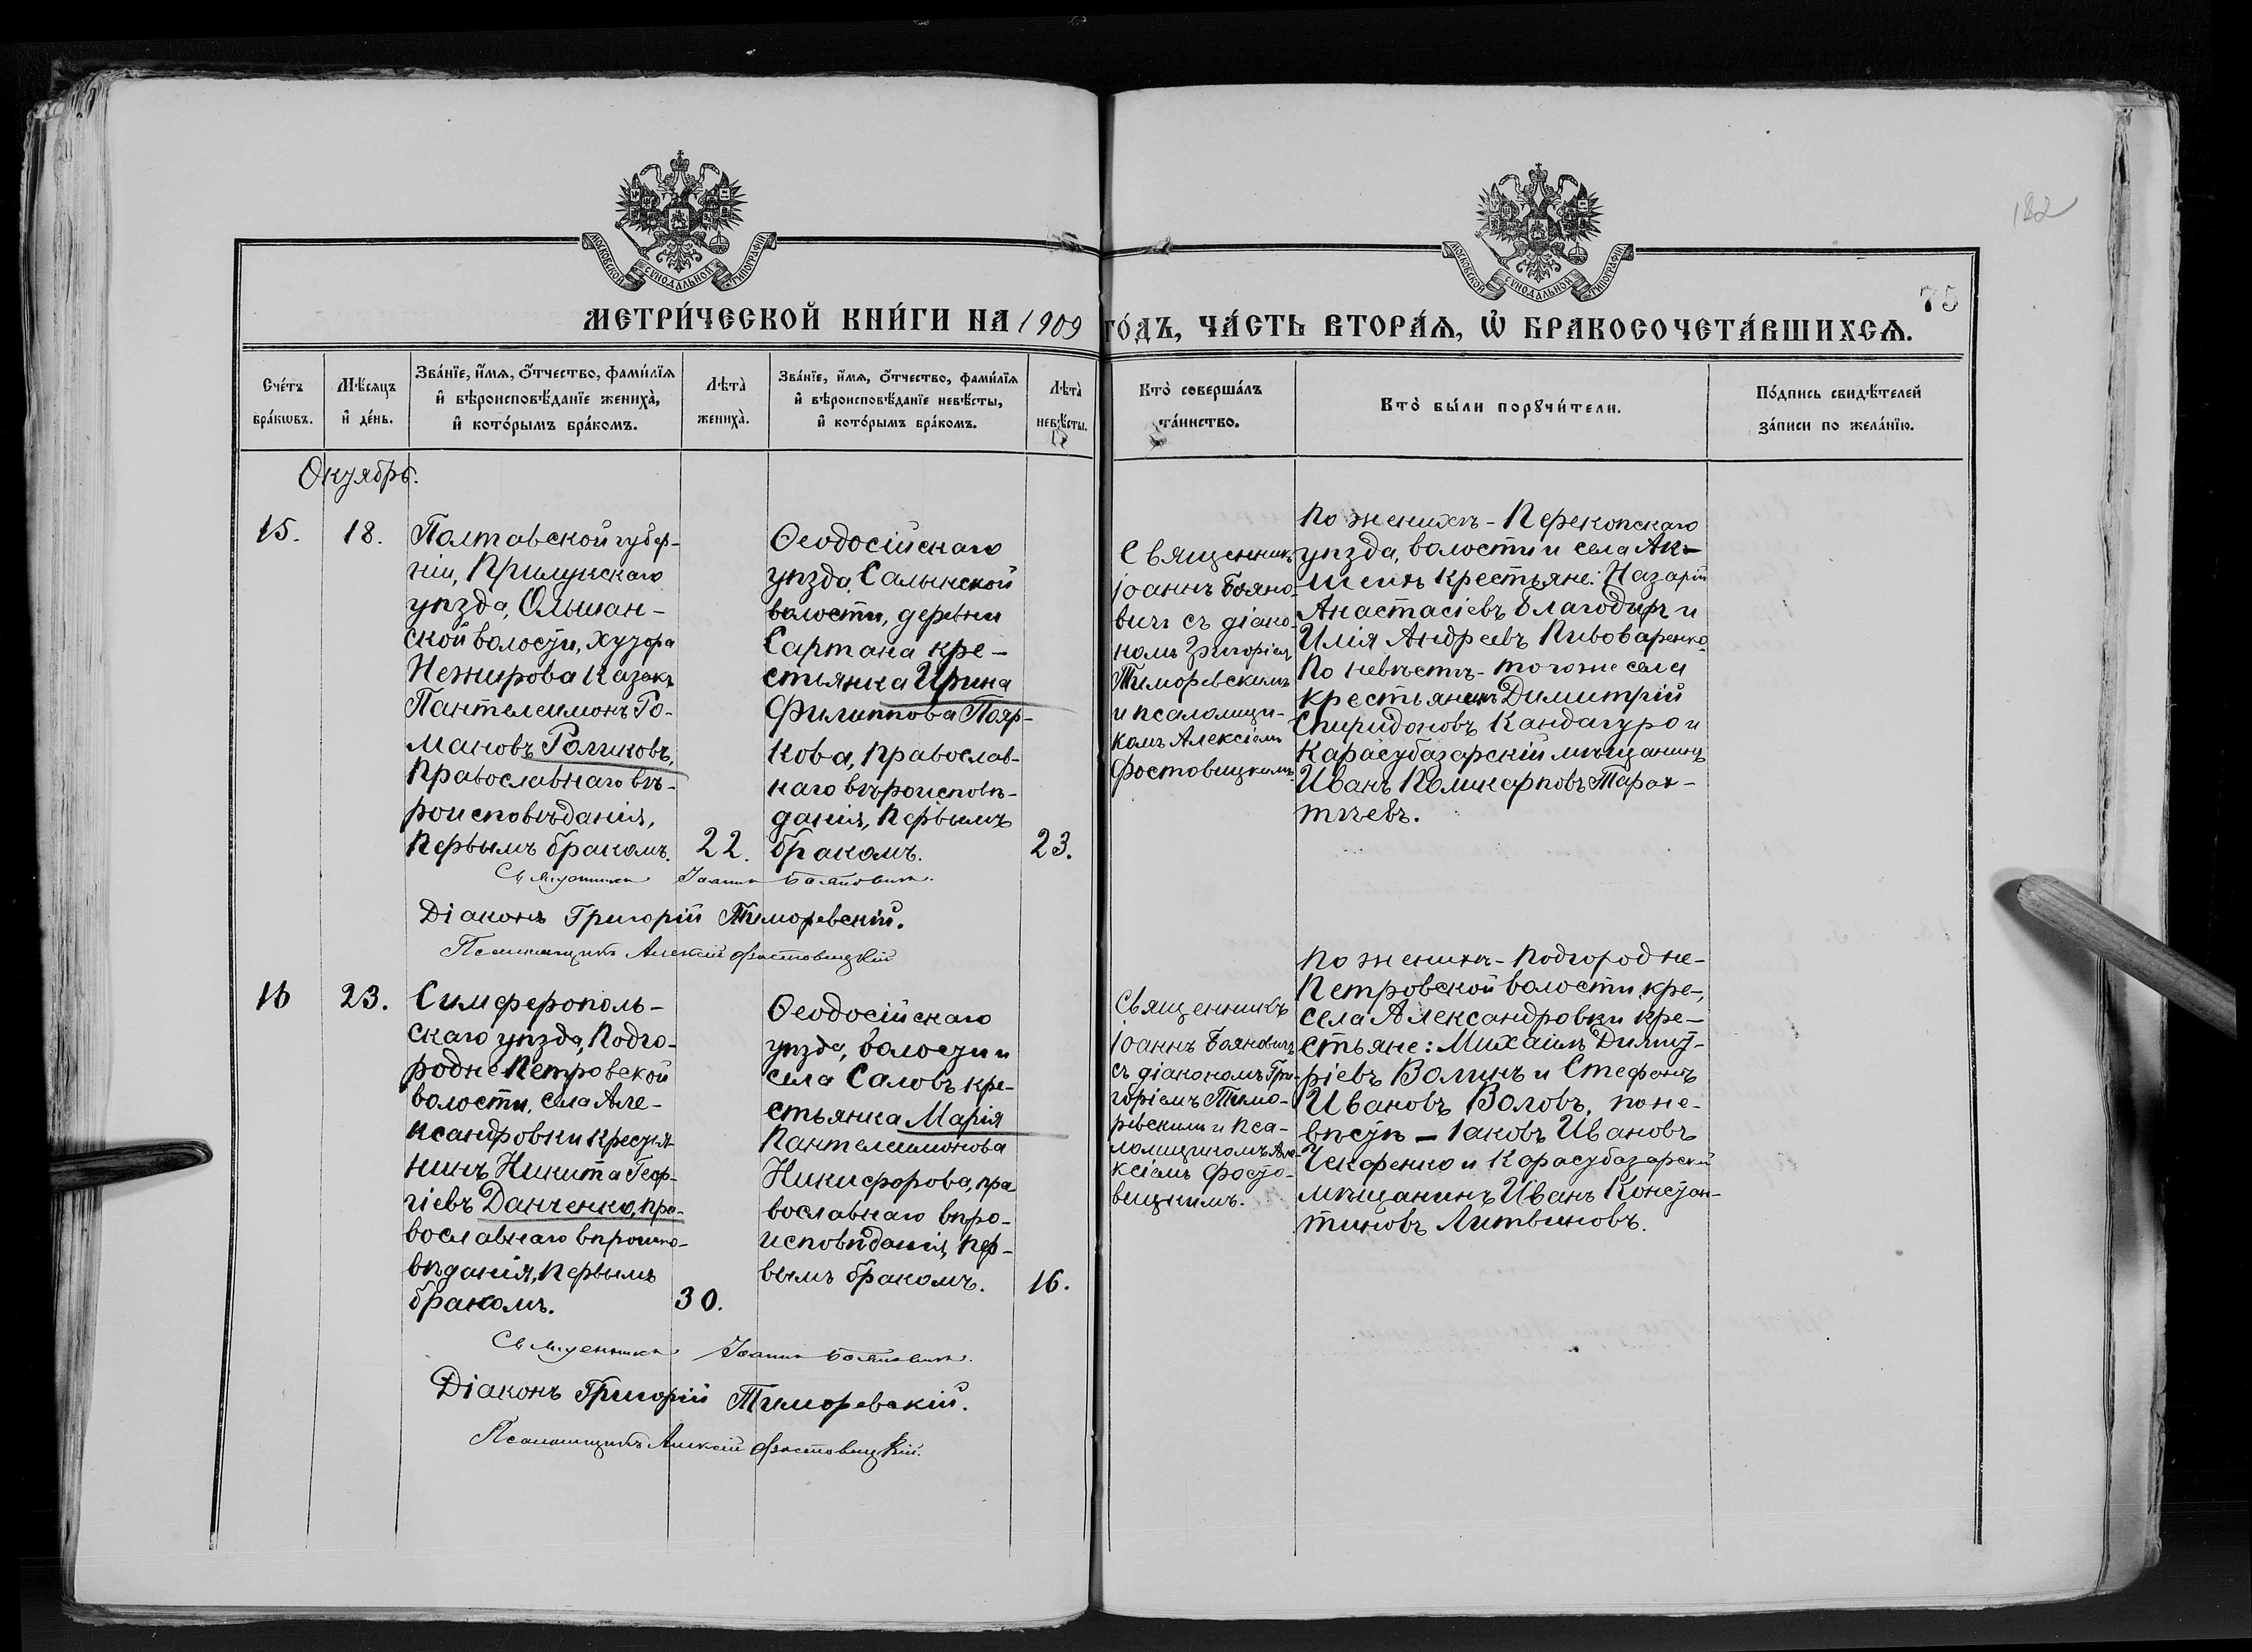 182
75
МОСКОВСКОЙ СУНОДАЛЬНОЙ ТИПОГРАФІИ
МОСКОВСКОЙ СУНОДАЛЬНОЙ ТИПОГРАФІИ
МЕТРИ́ЧЕСКОЙ КНИ́ГИ НА 1909 ГО́ДЪ, ЧА́СТЬ ВТОРА́Ѧ, Ѡ҆ БРАКОСОЧЕТА́ВШИХСѦ.
Сче́тъ
бра́кѡвъ.
Мѣ́сяцъ
и҆ де́нь.
Зва́нїе, и҆́мя, ѻ҆́тчество, фами́лїя
и҆ вѣроисповѣ́данїе жениха̀,
и҆ кото́рымъ бра́комъ.
Лѣта̀
жениха̀.
Зва́нїе, и҆́мя, ѻ҆́тчество, фами́лїя
и҆ вѣроисповѣ́данїе невѣ́сты,
и҆ кото́рымъ бра́комъ.
Лѣта̀
невѣ́сты.
Кто̀ соверша́лъ
та́инство.
Кто̀ бы́ли порꙋчи́тели.
По́дпись свидѣ́телей
за́писи по жела́нїю.
Октябрь.
15.
18.
Полтавской губер-
ніи, Прилукскаго
уѣзда, Ольшан-
ской волости, хутора
Нежирова казакъ
Пантелеимонъ Ро-
мановъ Роликовъ,
православнаго вѣ-
роисповѣданія,
первымъ бракомъ.
22.
Ѳеодосійскаго
уѣзда, Салынской
волости, деревни
Сартана кре-
стьянка Ирина
Филиппова Пояр-
кова, православ-
наго вѣроисповѣ-
данія, первымъ
бракомъ.
23.
Священникъ
Іоаннъ Бояно-
вичъ съ діако-
номъ Григоріемъ
Тиморевскимъ
и псаломщи-
комъ Алексіемъ
Фостовицкимъ.
По женихѣ - Перекопскаго
уѣзда, волости и села Ак-
шеихъ крестьяне: Назарій
Анастасіевъ Благодиръ и
Илія Андреевъ Пивоваренко.
По невѣстѣ - того же села
крестьянинъ Димитрій
Спиридоновъ Кандагуро и
Карасубазарскій мѣщанинъ
Иванъ Поликарповъ Тарах-
тѣевъ.
Священникъ Іоаннъ Бояновичъ.
Діаконъ Григорій Тиморевскій.
Псаломщикъ Алексій Фостовицкій
16
23.
Симферополь-
скаго уѣзда, Подго-
родне-Петровской
волости, села Але-
ксандровки крестья-
нинъ Никита Геор-
гіевъ Данченко, пра-
вославнаго вѣроиспо-
вѣданія, первымъ
бракомъ.
30.
Ѳеодосійскаго
уѣзда, волости и
села Саловъ кре-
стьянка Марія
Пантелеимонова
Никифорова, пра-
вославнаго вѣро-
исповѣданія, пер-
вымъ бракомъ.
16.
Священникъ
Іоаннъ Бояновичъ
съ діакономъ Гри-
горіемъ Тимо-
ревскимъ и пса-
ломщикомъ Але-
ксіемъ Фосто-
вицкимъ.
По женихѣ - Подгородне-
Петровской волости, кре-,
села Александровки кре-
стьяне: Михаилъ Димит-
ріевъ Волинъ и Стефанъ
Ивановъ Воловъ, по не-
вѣстѣ - Іаковъ Ивановъ
Чекаренко и Карасубазарскій
мѣщанинъ Иванъ Констан-
тиновъ Литвиновъ.
Священникъ Іоаннъ Бояновичъ.
Діаконъ Григорій Тиморевскій.
Псаломщикъ Алексій Фостовицкій.